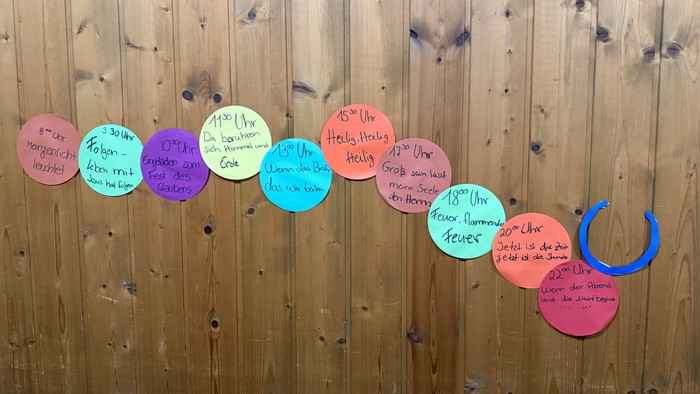 8⁰⁰ Uhr
Morgenlicht
leuchtet
9 30 Uhr
Folgen -
Leben mit
Jesus hat folgen
10³⁰ Uhr
Eingeladen zum
Fest des
Glaubens
11³⁰ Uhr
Da berühren
sich Himmel und
Erde
13⁰⁰ Uhr
Wenn das Brot,
das wir teilen
15³⁰ Uhr
Heilig, Heilig
Heilig
17³⁰ Uhr
Groß sein lässt
meine Seele
den Herrn
18⁰⁰ Uhr
Feuer, flammendes
Feuer
20⁰⁰ Uhr
Jetzt ist die Zeit
jetzt ist die Stunde
22⁰⁰ Uhr
Wenn der Abend
und die Nacht beginnt
... ...